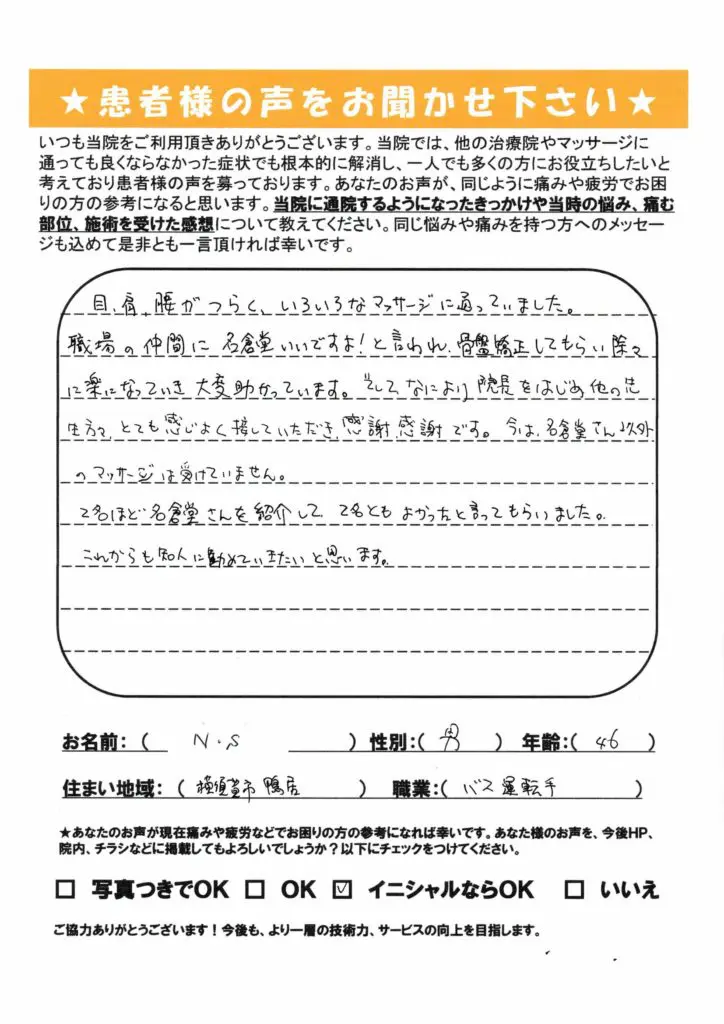 ★患者様の声をお聞かせ下さい★
いつも当院をご利用頂きありがとうございます。当院では、他の治療院やマッサージに
通っても良くならなかった症状でも根本的に解消し、一人でも多くの方にお役立ちしたいと
考えており患者様の声を募っております。あなたのお声が、同じように痛みや疲労でお困
りの方の参考になると思います。当院に通院するようになったきっかけや当時の悩み、痛む
部位、施術を受けた感想について教えてください。同じ悩みや痛みを持つ方へのメッセー
ジも込めて是非とも一言頂ければ幸いです。
目、肩、腰がつらく、いろいろなマッサージに通っていました。
職場の仲間に名倉堂いいですよ!と言われ、骨盤矯正してもらい除々
に楽になっていき大変助かっています。そしてなにより院長をはじめ他の先
生方々、とても感じよく接していただき、感謝、感謝です。今は、名倉堂さん以外
のマッサージは受けていません。
2名ほど名倉堂さんを紹介して、2名ともよかったと言ってもらいました。
これからも知人に勧めていきたいと思います。
お名前:( N.S ) 性別:( 男 ) 年齢:( 46 )
住まい地域:( 横須賀市 鴨居 ) 職業:( バス運転手 )
★あなたのお声が現在痛みや疲労などでお困りの方の参考になれば幸いです。あなた様のお声を、今後HP、
院内、チラシなどに掲載してもよろしいでしょうか?以下にチェックをつけてください。
□ 写真つきでOK □ OK ☑ イニシャルならOK □ いいえ
ご協力ありがとうございます!今後も、より一層の技術力、サービスの向上を目指します。